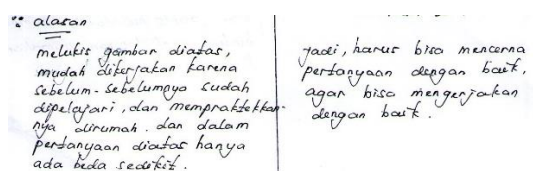 ∵ alasan
melukis gambar diatas,
mudah dikerjakan karena
sebelum-sebelumnya sudah
dipelajari, dan mempraktekkan-
nya dirumah. dan dalam
pertanyaan diatas hanya
ada beda sedikit.
jadi, harus bisa mencerna
pertanyaan dengan baik,
agar bisa mengerjakan
dengan baik.